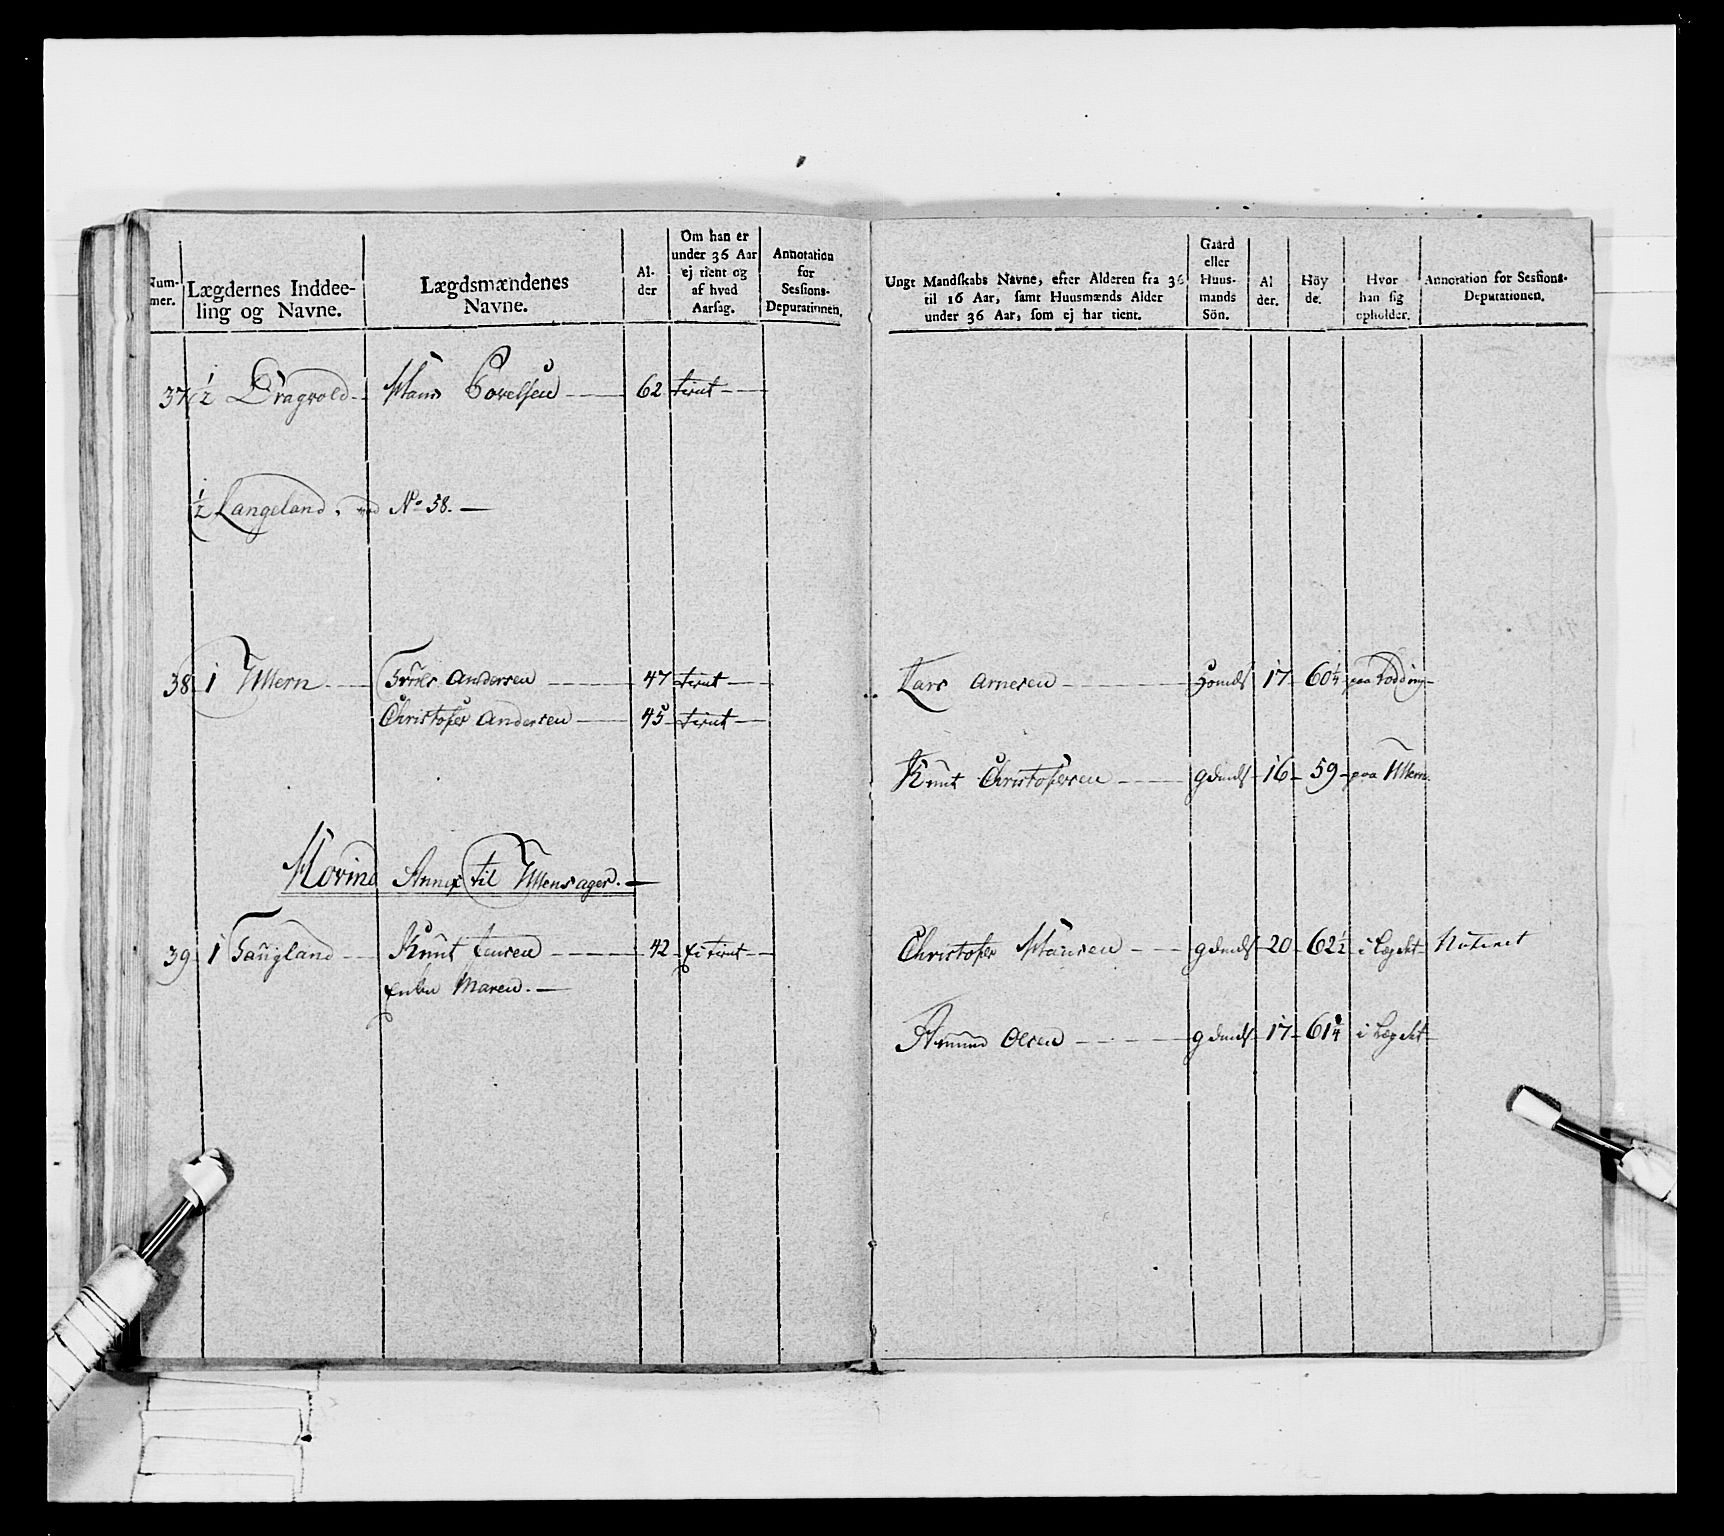 Num-
mer.
Lægdernes Inddee-
ling og Navne.
Lægdsmændenes
Navne.
Al-
der
Om han er
under 36 Aar
ej tient og
af hvad
Aarsag.
Annotation
for
Sessions-
Deputationen.
37 1/2 Dragvold Hans Povelsen 62 tient
1/2 Langeland. ved No 58.
38 1 Ullern Andersen 47 tient
Christofer Andersen 45 tient
Hovind Annex til Ullensager.
39 1 Knut Jensen 42 Ej tient
Enken Maren.
Ungt Mandskabs Navne, efter Alderen fra 36
til 16 Aar, samt Huusmænds Alder
under 36 Aar, som ej har tient.
Gaard
eller
Huus-
mands
Sön.
Al
der.
Höy
de.
Hvor
han sig
opholder.
Annotation for Sessions-
Deputationen.
Lars Arnesen 17 60 1/4 paa
Knut Christofersen gdmds 16 59 paa Ullern
Christofer Hansen gdmds 20 62 1/2 i Lægdet Noteret
Amund Olsen gdmds 17 61 1/4 i Lægdet